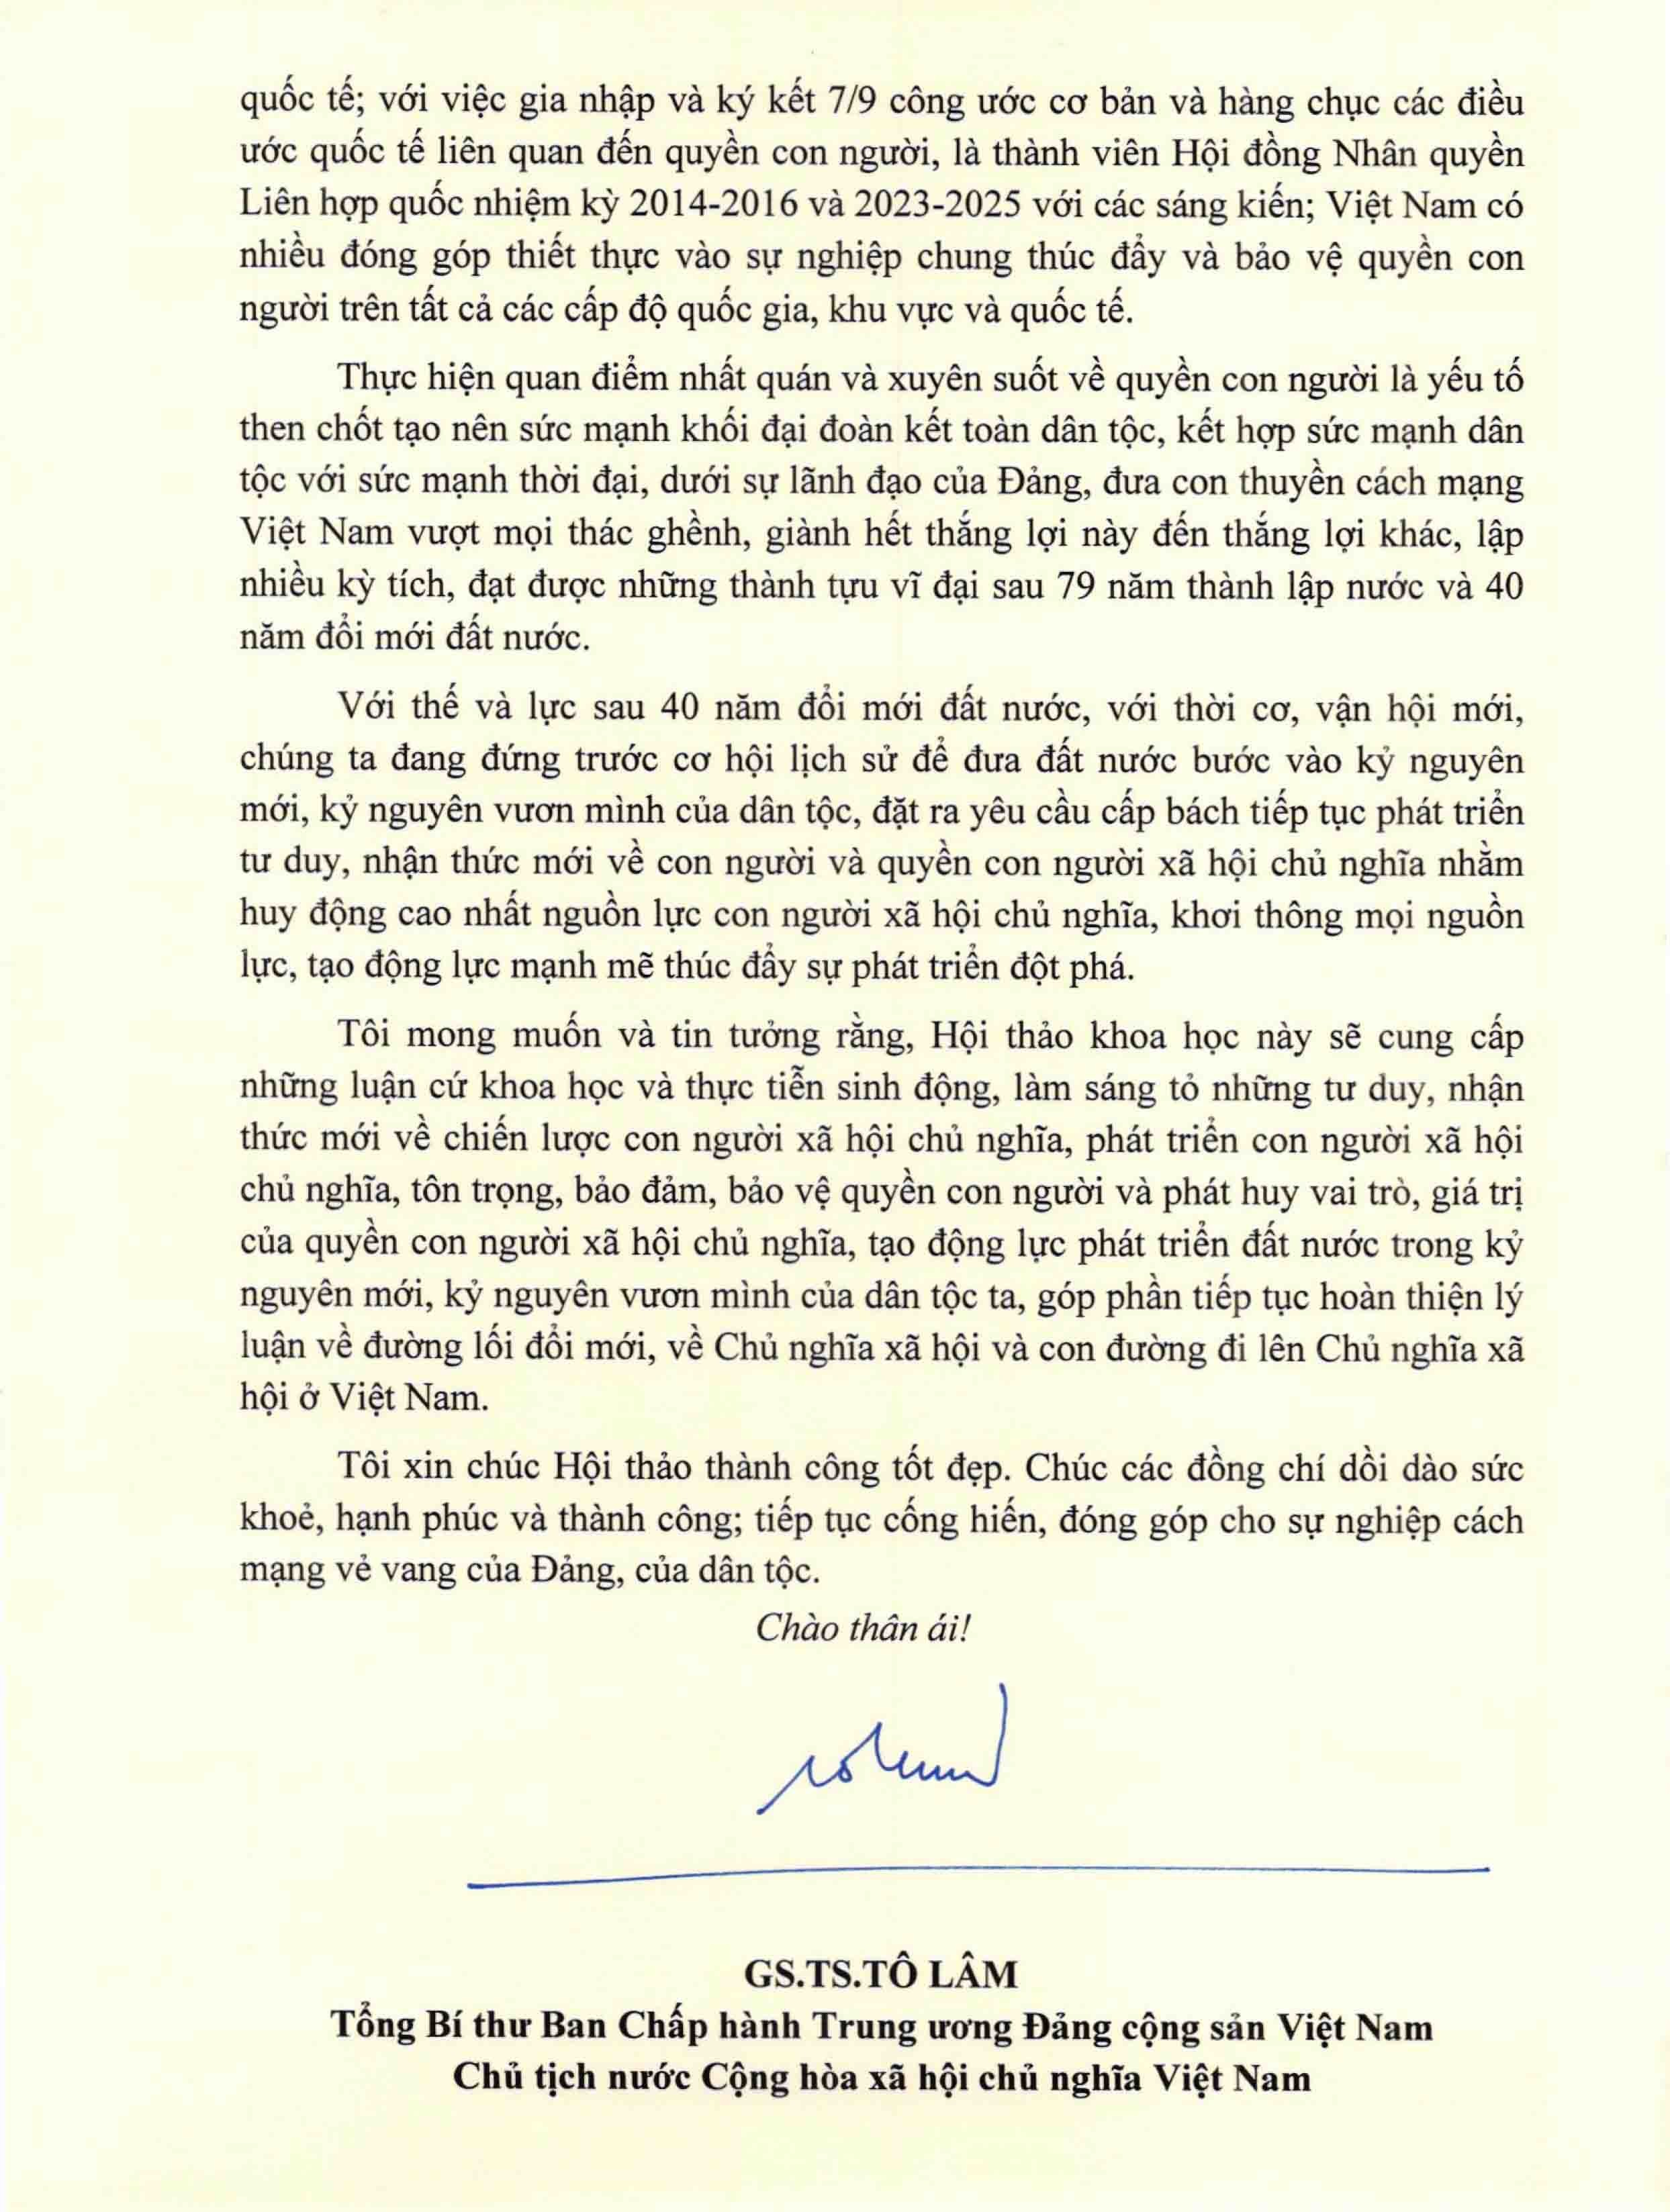 quốc tế; với việc gia nhập và ký kết 7/9 công ước cơ bản và hàng chục các điều
ước quốc tế liên quan đến quyền con người, là thành viên Hội đồng Nhân quyền
Liên hợp quốc nhiệm kỳ 2014-2016 và 2023-2025 với các sáng kiến; Việt Nam có
nhiều đóng góp thiết thực vào sự nghiệp chung thúc đẩy và bảo vệ quyền con
người trên tất cả các cấp độ quốc gia, khu vực và quốc tế.
Thực hiện quan điểm nhất quán và xuyên suốt về quyền con người là yếu tố
then chốt tạo nên sức mạnh khối đại đoàn kết toàn dân tộc, kết hợp sức mạnh dân
tộc với sức mạnh thời đại, dưới sự lãnh đạo của Đảng, đưa con thuyền cách mạng
Việt Nam vượt mọi thác ghềnh, giành hết thắng lợi này đến thắng lợi khác, lập
nhiều kỳ tích, đạt được những thành tựu vĩ đại sau 79 năm thành lập nước và 40
năm đổi mới đất nước.
Với thế và lực sau 40 năm đổi mới đất nước, với thời cơ, vận hội mới,
chúng ta đang đứng trước cơ hội lịch sử để đưa đất nước bước vào kỷ nguyên
mới, kỷ nguyên vươn mình của dân tộc, đặt ra yêu cầu cấp bách tiếp tục phát triển
tư duy, nhận thức mới về con người và quyền con người xã hội chủ nghĩa nhằm
huy động cao nhất nguồn lực con người xã hội chủ nghĩa, khơi thông mọi nguồn
lực, tạo động lực mạnh mẽ thúc đẩy sự phát triển đột phá.
Tôi mong muốn và tin tưởng rằng, Hội thảo khoa học này sẽ cung cấp
những luận cứ khoa học và thực tiễn sinh động, làm sáng tỏ những tư duy, nhận
thức mới về chiến lược con người xã hội chủ nghĩa, phát triển con người xã hội
chủ nghĩa, tôn trọng, bảo đảm, bảo vệ quyền con người và phát huy vai trò, giá trị
của quyền con người xã hội chủ nghĩa, tạo động lực phát triển đất nước trong kỷ
nguyên mới, kỷ nguyên vươn mình của dân tộc ta, góp phần tiếp tục hoàn thiện lý
luận về đường lối đổi mới, về Chủ nghĩa xã hội và con đường đi lên Chủ nghĩa xã
hội ở Việt Nam.
Tôi xin chúc Hội thảo thành công tốt đẹp. Chúc các đồng chí dồi dào sức
khoẻ, hạnh phúc và thành công; tiếp tục cống hiến, đóng góp cho sự nghiệp cách
mạng vẻ vang của Đảng, của dân tộc.
Chào thân ái!
GS.TS.TÔ LÂM
Tổng Bí thư Ban Chấp hành Trung ương Đảng cộng sản Việt Nam
Chủ tịch nước Cộng hòa xã hội chủ nghĩa Việt Nam